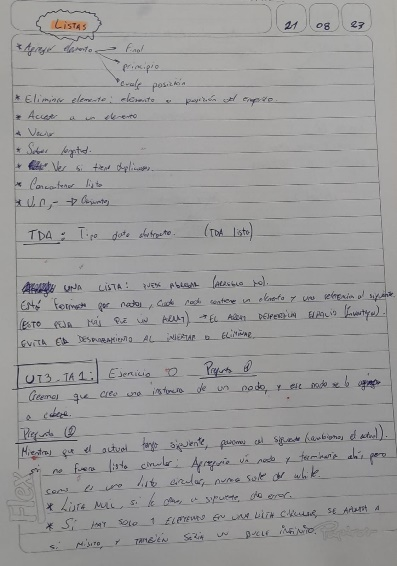 LISTAS
21 08 23
* Agregar elemento → final
→ principio
→ cualq posición
* Eliminar elemento: elemento o posición del
* Acceder a un elemento
* Vaciar
* Saber longitud.
* Ver si tiene duplicados.
* Concatenar lista
* U, ∩, - → Conjuntos
TDA : Tipo dato abstracto. (TDA lista)
UNA LISTA: PUEDE (ARREGLO NO).
Está formada por nodos, cada nodo contiene un elemento y una referencia al siguiente
(ESTO PESA MÁS QUE UN ARRAY) → EL ARRAY DESPERDICIA ESPACIO
EVITA EL DESPLAZAMIENTO AL INSERTAR O ELIMINAR
UT3 - TA1: Ejercicio Pregunta
Creemos que crea una instancia de un nodo, y ese nodo se lo
a cabeza.
Pregunta 2
Mientras que el actual tenga siguiente, pasamos al siguiente (cambiamos el actual).
si no fuera lista circular: Agregaría un nodo y terminaría ahí, pero
como es una lista circular, nunca sale del while.
* LISTA NULL, si le pasa a siguiente, da error.
* SI HAY SOLO 1 ELEMENTO EN UNA LISTA CIRCULAR, SE APUNTA A
SI MISMO, Y TAMBIÉN SERÍA UN BUCLE INFINITO.
Flex